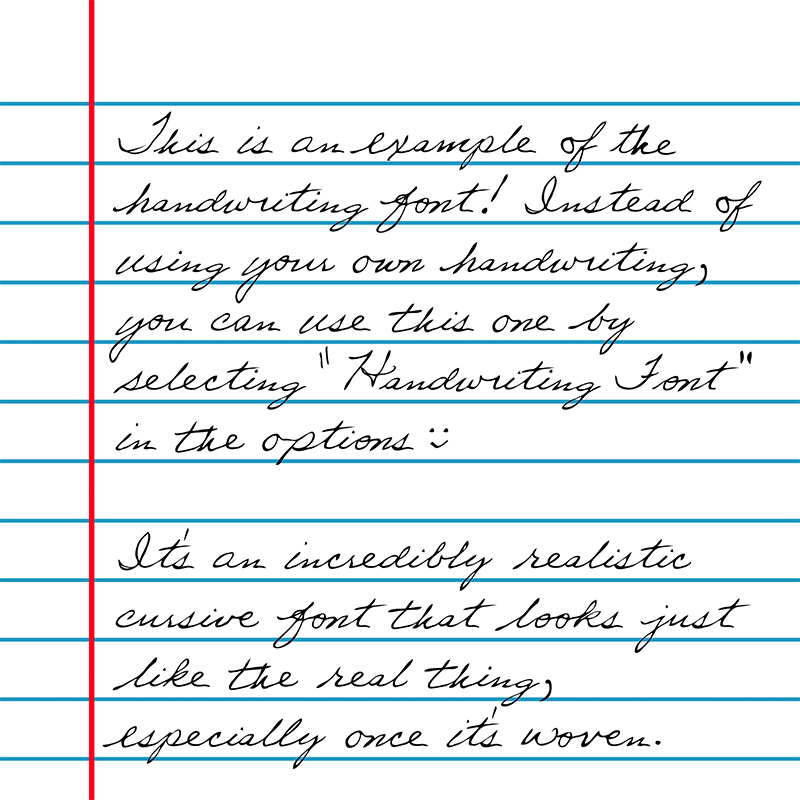 This is an example of the
handwriting font! Instead of
using your own handwriting,
you can use this one by
selecting "Handwriting Font"
in the options :)
It's an incredibly realistic
cursive font that looks just
like the real thing,
especially once it's woven.